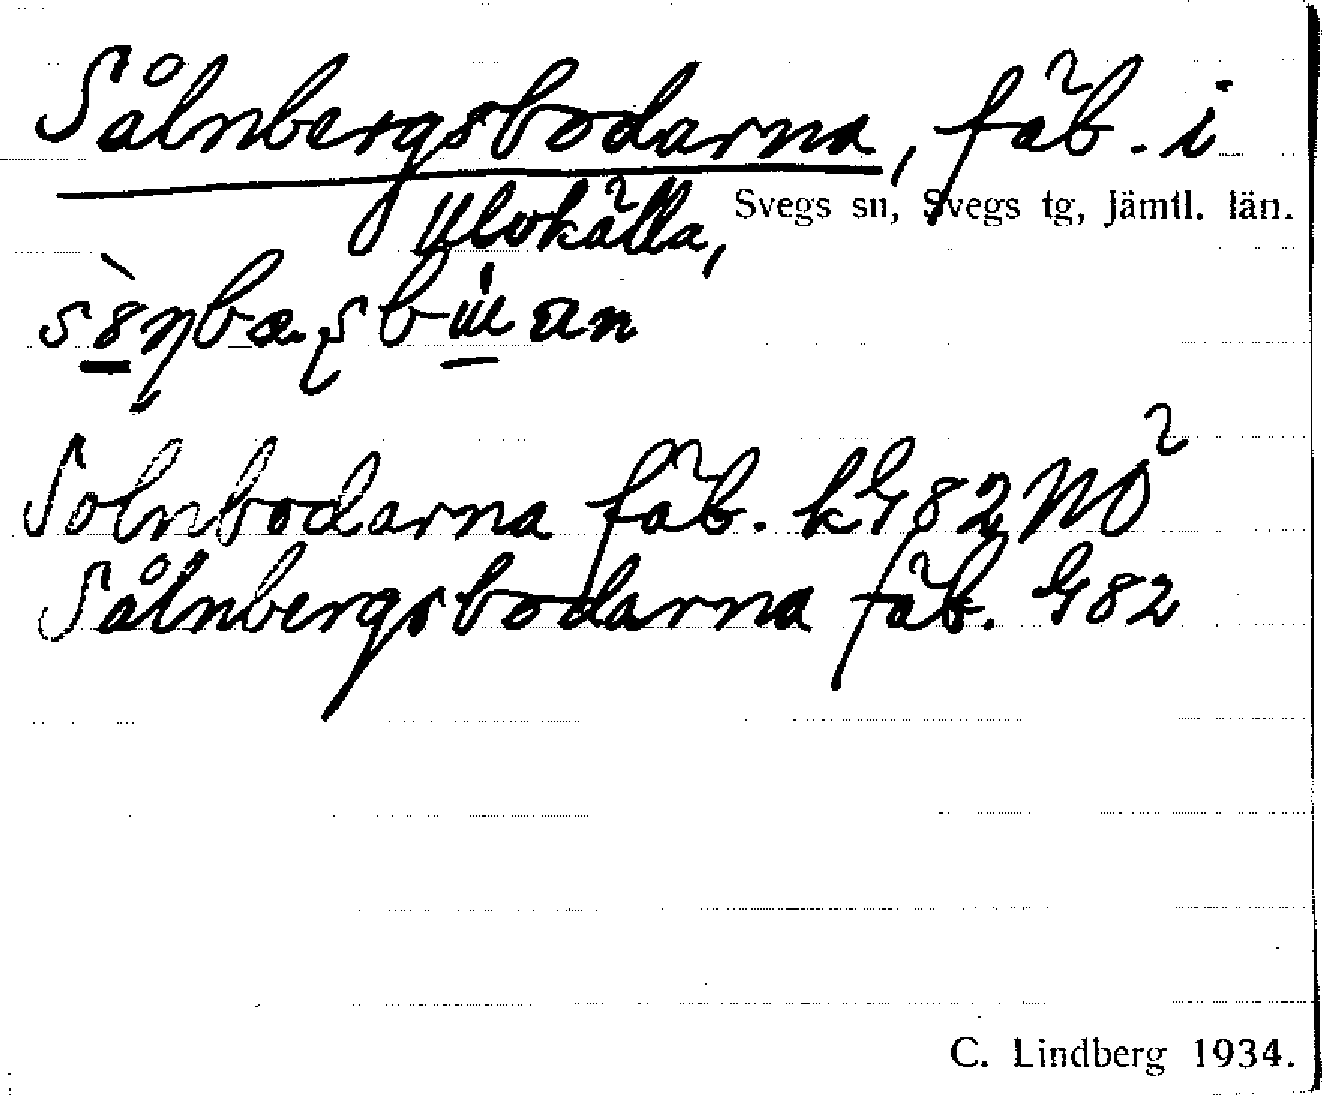 Sålnbergsbodarna, fäb. i
Ulvkälla, Svegs sn, Svegs tg, Jämtl. län.
Solnbodarna fäb. kG 82 NÖ
Sålnbergsbodarna fäb. G 82
C. Lindberg 1934.